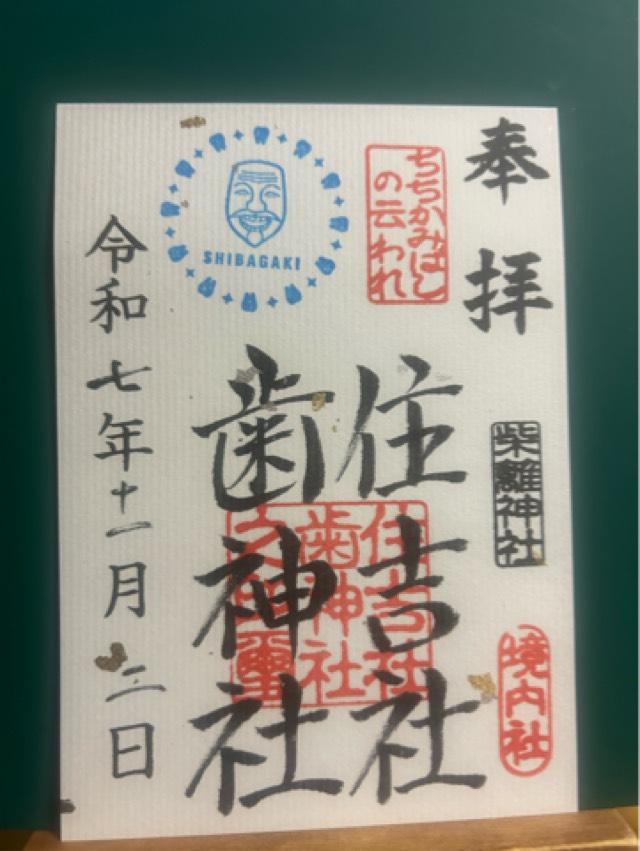 奉拝
柴籬神社
境内社
ちちかみばし
の云われ
住吉社
歯神社
住吉社
歯神社
SHIBAGAKI
令和七年十一月二日